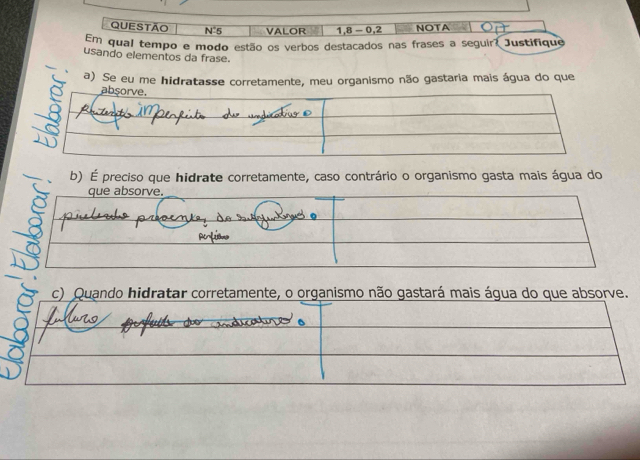 QUESTÃO Nº5 VALOR 1,8 – 0,2 NOTA 07
Em qual tempo e modo estão os verbos destacados nas frases a seguir? Justifique
usando elementos da frase.
a) Se eu me hidratasse corretamente, meu organismo não gastaria mais água do que
absorve.
imperfeito do indicativo
b) É preciso que hidrate corretamente, caso contrário o organismo gasta mais água do
que absorve.
do
c) Quando hidratar corretamente, o organismo não gastará mais água do que absorve.
futuro do indicativo
Elaborar!
Elaborar!
Elaborar!